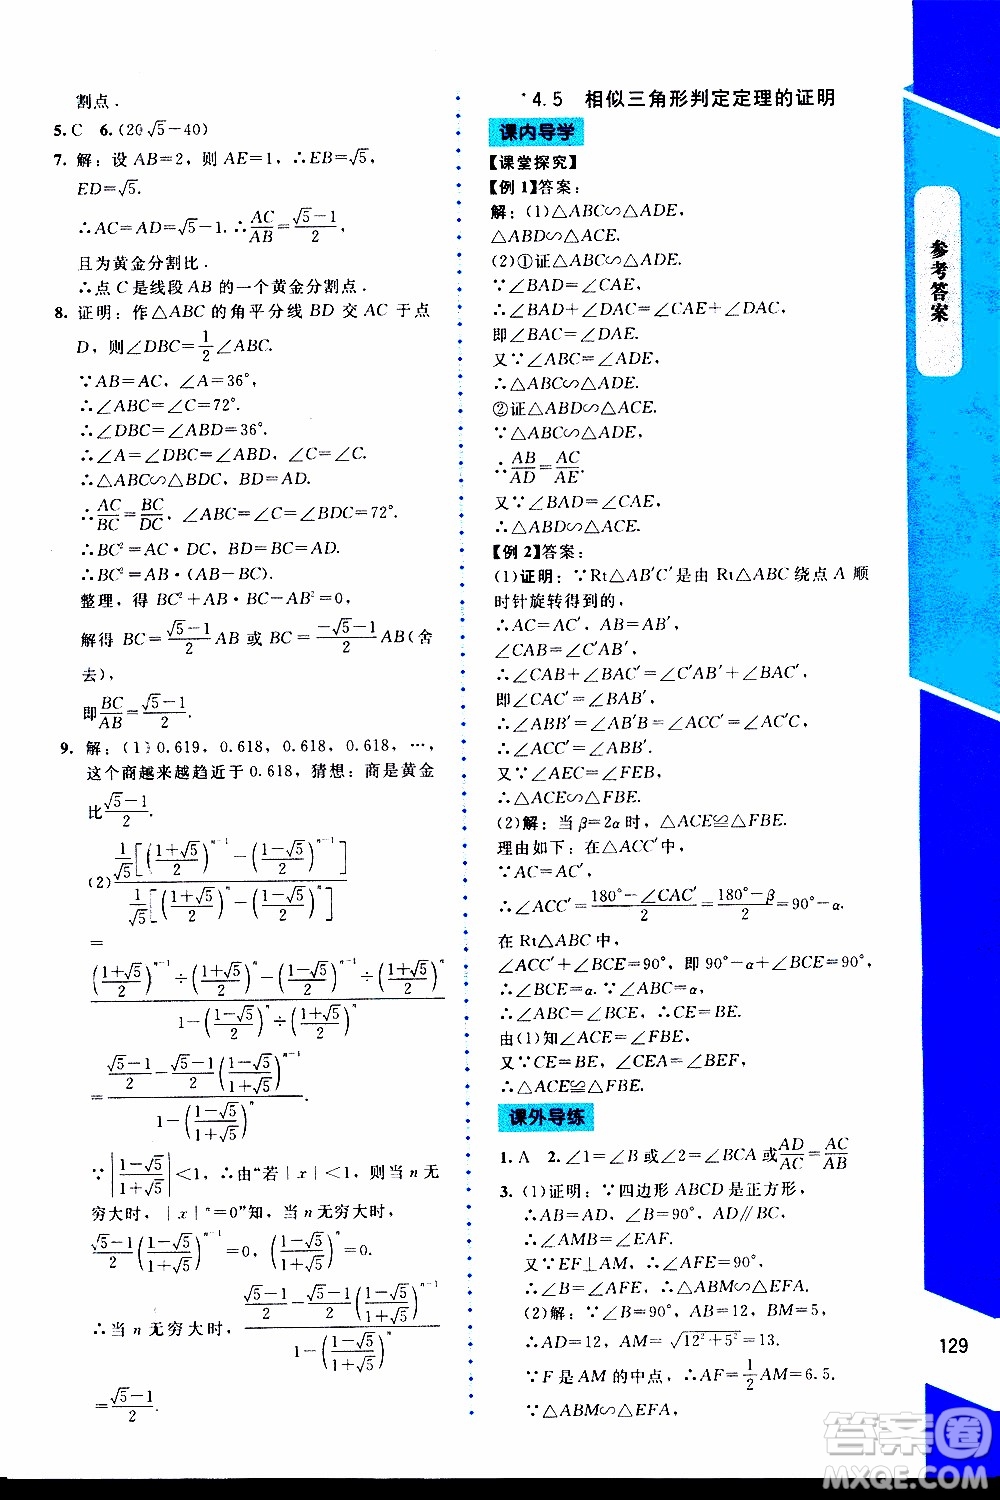 割点．
5. C  6. (20√5－40)
7. 解：设 AB=2，则 AE=1，∴EB=√5，
ED=√5.
∴AC=AD=√5－1.∴AC/AB=(√5－1)/2，
且为黄金分割比．
∴点 C 是线段 AB 的一个黄金分割点．
8. 证明：作△ABC 的角平分线 BD 交 AC 于点
D，则∠DBC=1/2∠ABC.
∵AB=AC，∠A=36°，
∴∠ABC=∠C=72°.
∴∠DBC=∠ABD=36°.
∴∠A=∠ABD，∠C=∠C.
∴△ABC∽△BDC.
∴AC/BC=BC/DC，∠ABC=∠C=∠BDC=72°.
∴BC²=AC·DC，BC=BD=AD.
∴BC²=AB·(AB－BC).
整理，得 BC²+AB·BC－AB²=0，
解得 BC=(√5－1)/2 AB 或 BC=(－√5－1)/2 AB(舍
去)，
即BC/AB=(√5－1)/2.
9. 解：(1)0.619，0.618，0.618，0.618，…，
这个商越来越趋近于 0.618，猜想：商是黄金
比(√5－1)/2.
(2) {1/√5[((1+√5)/2)^(n－1)－((1－√5)/2)^(n－1)]}/{1/√5[((1+√5)/2)^n－((1－√5)/2)^n]}
=
{((1+√5)/2)^(n－1)÷((1+√5)/2)^n－((1－√5)/2)^(n－1)÷((1+√5)/2)^n}/{1－((1－√5)/2)^n÷((1+√5)/2)^n}
={(√5－1)/2－(√5－1)/2((1－√5)/(1+√5))^(n－1)}/{1－((1－√5)/(1+√5))^n}.
∵|(1－√5)/(1+√5)|<1，∴由“若｜x｜<1，则当 n 无
穷大时，｜x｜ⁿ=0”知，当 n 无穷大时，
(√5－1)/2((1－√5)/(1+√5))^(n－1)=0，((1－√5)/(1+√5))^n=0.
∴当 n 无穷大时，{(√5－1)/2－(√5－1)/2((1－√5)/(1+√5))^(n－1)}/{1－((1－√5)/(1+√5))^n}
=(√5－1)/2.
*4.5 相似三角形判定定理的证明
课内导学
【课堂探究】
【例 1】答案：
解：(1)△ABC∽△ADE，
△ABD∽△ACE.
(2)①证△ABC∽△ADE.
∵∠BAD=∠CAE，
∴∠BAD+∠DAC=∠CAE+∠DAC，
即∠BAC=∠DAE.
又∵∠ABC=∠ADE，
∴△ABC∽△ADE.
②证△ABD∽△ACE.
∵△ABC∽△ADE，
∴AB/AD=AC/AE.
又∵∠BAD=∠CAE，
∴△ABD∽△ACE.
【例 2】答案：
(1)证明：∵Rt△AB′C′是由 Rt△ABC 绕点 A 顺
时针旋转得到的，
∴AC=AC′，AB=AB′，
∠CAB=∠C′AB′，
∴∠CAB+∠BAC′=∠C′AB′+∠BAC′，
即∠CAC′=∠BAB′，
∴∠ABB′=∠AB′B=∠ACC′=∠AC′C，
又∵∠AEC=∠FEB，
∴△ACE∽△FBE.
(2)解：当 β=2α 时，△ACE≌△FBE.
理由如下：在△ACC′中，
∵AC=AC′，
∴∠ACC′=(180°－∠CAC′)/2=(180°－β)/2=90°－α.
在 Rt△ABC 中，
∠ACC′+∠BCE=90°，即 90°－α+∠BCE=90°，
∴∠BCE=α.∵∠ABC=α，
∴∠ABC=∠BCE，∴CE=BE.
由(1)知∠ACE=∠FBE，
又∵CE=BE，∠CEA=∠BEF，
∴△ACE≌△FBE.
课外导练
1. A  2. ∠1=∠B 或∠2=∠BCA 或AD/AC=AC/AB
3. (1)证明：∵四边形 ABCD 是正方形，
∴AB=AD，∠B=90°，AD∥BC，
∴∠AMB=∠EAF.
又∵EF⊥AM，∴∠AFE=90°，
∴∠B=∠AFE，∴△ABM∽△EFA.
(2)解：∵∠B=90°，AB=12，BM=5，
∴AD=12，AM=√(12²+5²)=13.
∵F 是 AM 的中点，∴AF=1/2AM=6.5.
∵△ABM∽△EFA，
参考答案
129
答案圈
MXQE.COM